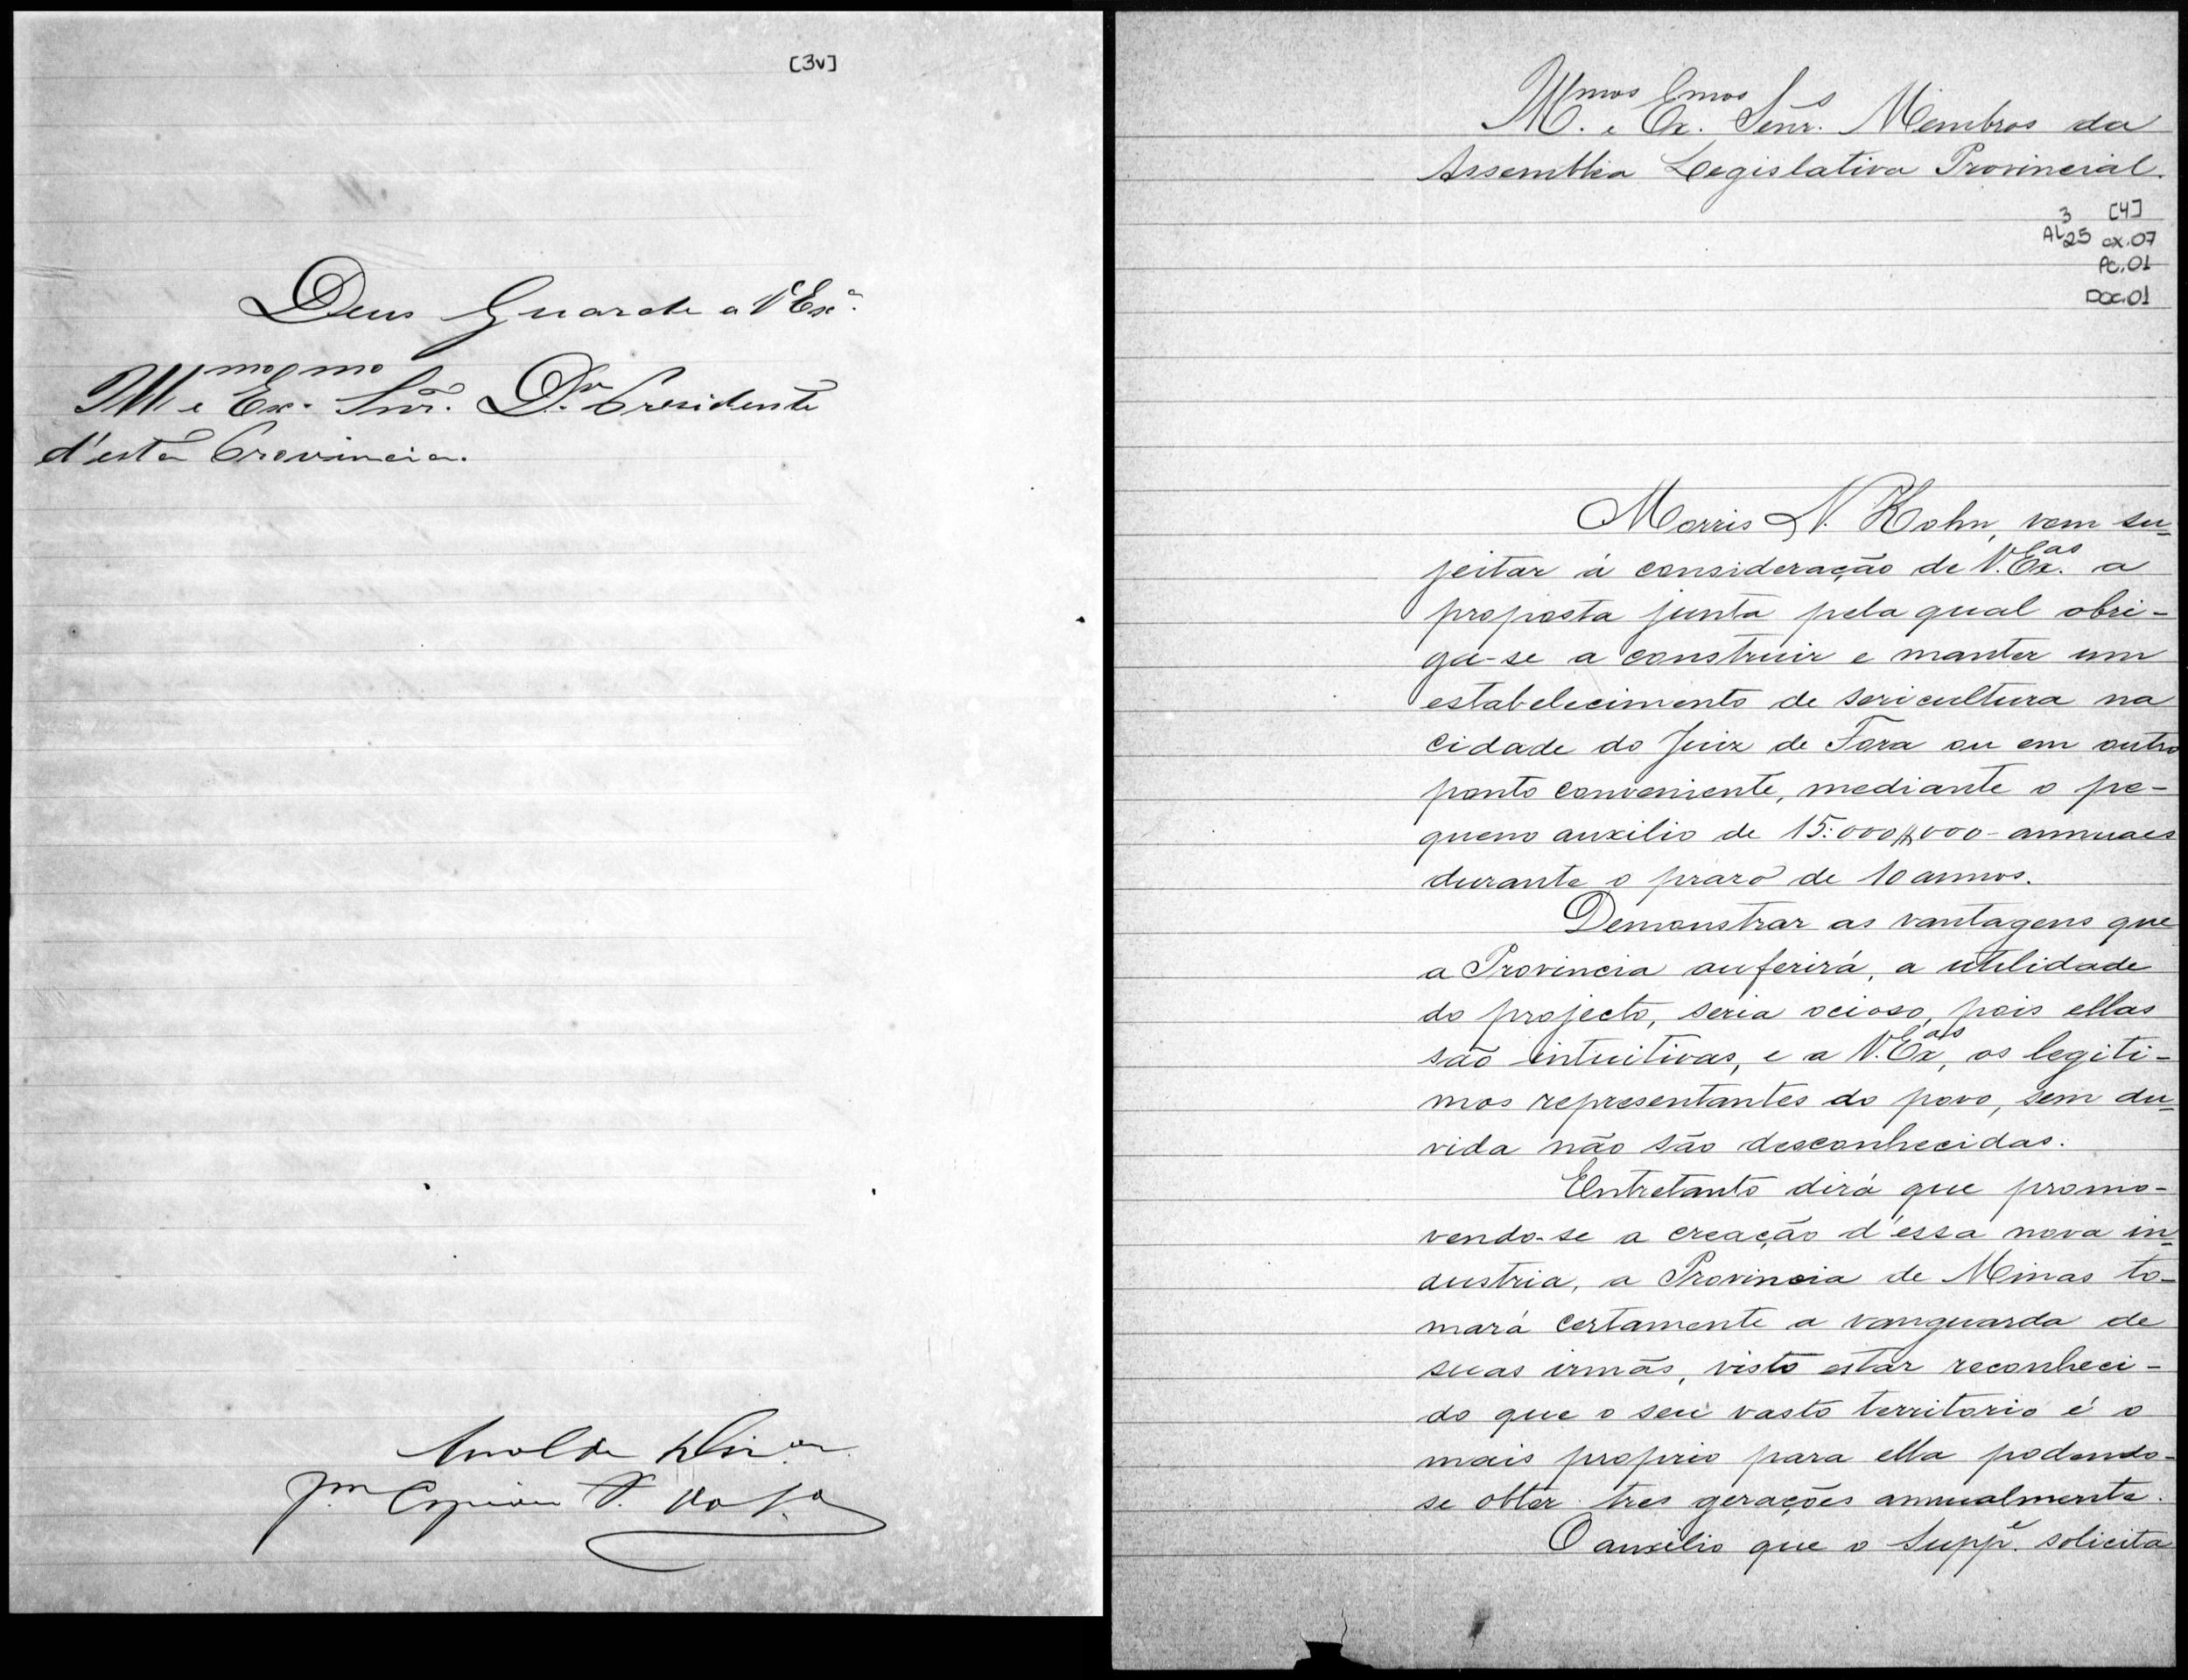 [3v]
Deus Guarde a V.Exª.
Illmo e Exmo Snr. Dr. Presidente
d'esta Provincia.
Illmos e Exmos Senrs. Membros da
Assemblea Legislativa Provincial.
3 [4]
AL 25 cx.07
PC.01
DOC.01
Morris N. Kohn, vem su-
jeitar á consideração de V.Exas. a
proposta junta pela qual obri-
ga-se a construir e manter um
estabelecimento de sericultura na
cidade do Juiz de Fora ou em outro
ponto conveniente, mediante o pe-
queno auxilio de 15:000$000 annuaes
durante o prazo de 10 annos.
Demonstrar as vantagens que
a Provincia auferirá, a utilidade
do projecto, seria ocioso, pois ellas
são intuitivas, e a V.Exas, os legiti-
mos representantes do povo, sem du-
vida não são desconhecidas.
Entretanto dirá que promo-
vendo-se a creação d'essa nova in-
dustria, a Provincia de Minas to-
mará certamente a vanguarda de
suas irmãs, visto estar reconheci-
do que o seu vasto territorio é o
mais proprio para ella podendo-
se obter tres gerações annualmente.
O auxilio que o Suppe. solicita